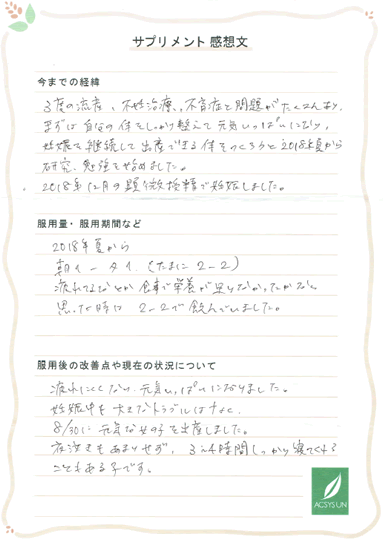 サプリメント 感想文
今までの経緯
3度の流産、不妊治療、不育症と問題がたくさんあり、
まずは自分の体をしっかり整えて元気いっぱいになり、
妊娠を継続して出産できる体をつくろうと2018年夏から
研究、勉強を始めました。
2018年12月の顕微授精で妊娠しました。
服用量・服用期間など
2018年夏から
朝1-夕1.(たまに2-2)
疲れてるなとか食事で栄養が足りなかったかなと
思った時は 2-2で飲んでいました。
服用後の改善点や現在の状況について
疲れにくくなり、元気いっぱいになりました。
妊娠中も大きなトラブルはなく、
8/30に元気な女の子を出産しました。
夜泣きもあまりせず、3、4時間しっかり寝てくれる
こともある子です。
ACSYSUN